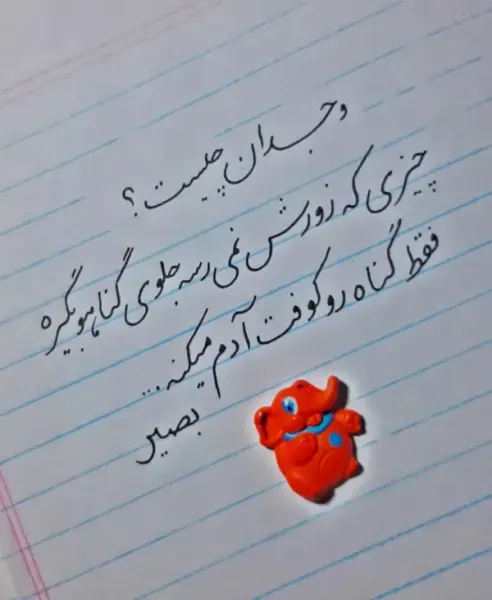 وجدان چیست؟
چیزی که زورش نمی رسه جلوی گناهو بگیره
فقط گناه رو کوفت آدم میکنه...
بصیر